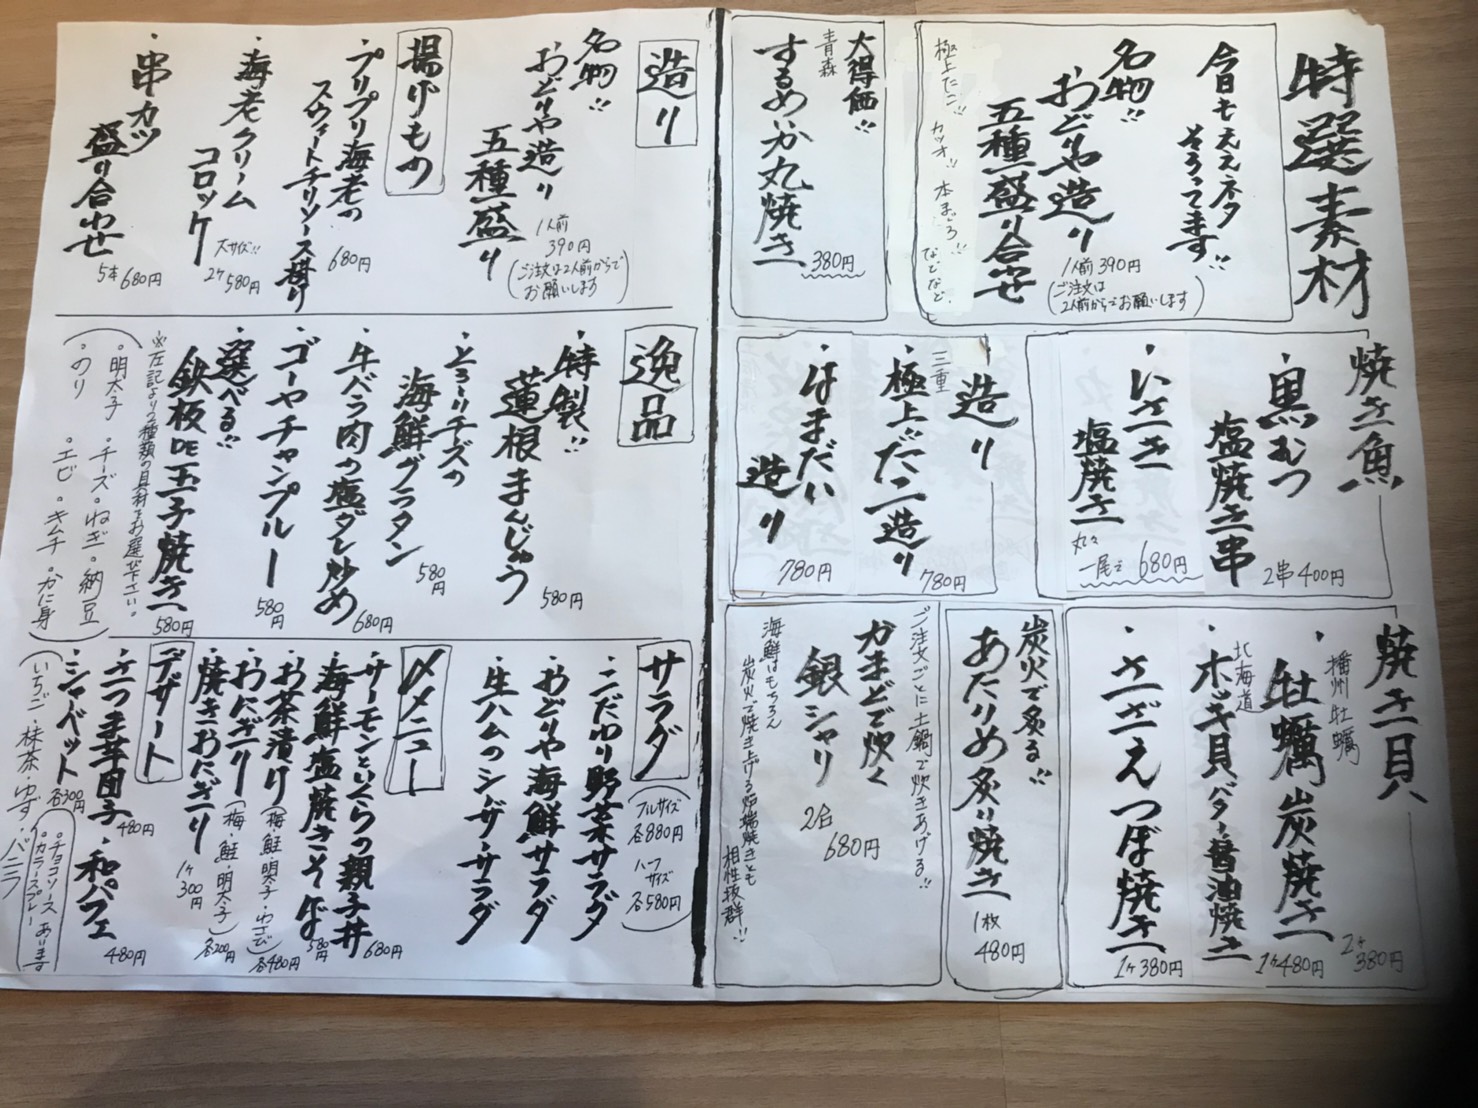 特選素材
今日もええネタ
そろってます!!
名物!!
おどりや造り
五種盛り合せ
1人前390円
(ご注文は
2人前からでお願いします)
極上たこ!! カツオ!! 本まぐろ!! などなど
大得価!!
青森
するめいか丸焼き
380円
焼き魚
・黒むつ
塩焼き串
2串400円
・いさき
塩焼き
丸々
一尾を680円
造り
三重
・極上だこ造り
780円
・はまだい
造り
780円
焼き貝
播州牡蠣
・牡蠣炭焼き
2ヶ
380円
北海道
・ホッキ貝バター醤油焼き
1ヶ480円
・さざえつぼ焼き
1ヶ380円
炭火で炙る!!
あたりめ炙り焼き
1枚
480円
ご注文ごとに土鍋で炊きあげる!!
かまどで炊く
銀シャリ
2合
680円
海鮮はもちろん
炭火で焼き上げる炉端焼きとも
相性抜群!!
造り
名物!!
おどりや造り
五種盛り
1人前
390円
(ご注文は2人前からで
お願いします)
揚げもの
・プリプリ海老の
スウィートチリソース掛け
680円
・海老クリーム
コロッケ
大サイズ!!
2ヶ580円
・串カツ
盛り合わせ
5本680円
逸品
・特製!!
蓮根まんじゅう
580円
・とろーりチーズの
海鮮グラタン
580円
・牛バラ肉の塩ダレ炒め
680円
・ゴーヤチャンプルー
580円
・選べる!!
鉄板DE玉子焼き
580円
※左記より2種類の具材をお選び下さい。
(・明太子・チーズ・ねぎ・納豆
・のり・エビ・キムチ・かに身)
サラダ
(フルサイズ
各880円
ハーフ
サイズ
各580円)
・こだわり野菜サラダ
・おどりや海鮮サラダ
・生ハムのシーザーサラダ
〆メニュー
・サーモンといくらの親子丼
680円
・海鮮塩焼きそば
580円
・お茶漬け(梅・鮭・明太子・わさび)
各480円
・おにぎり(梅・鮭・明太子)
各200円
・焼きおにぎり
1ヶ
300円
デザート
・さつま芋団子
480円
・和パフェ
480円
・シャーベット
各300円
(いちご・抹茶・ゆず・バニラ
・チョコソース
・カラースプレーあります